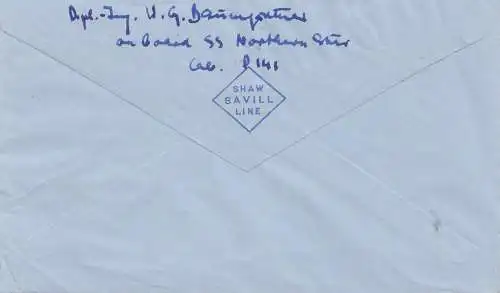 Dipl.-Ing. H. G. Baumgärtner
on board SS Northern Star
Cab. D 141
SHAW
SAVILL
LINE